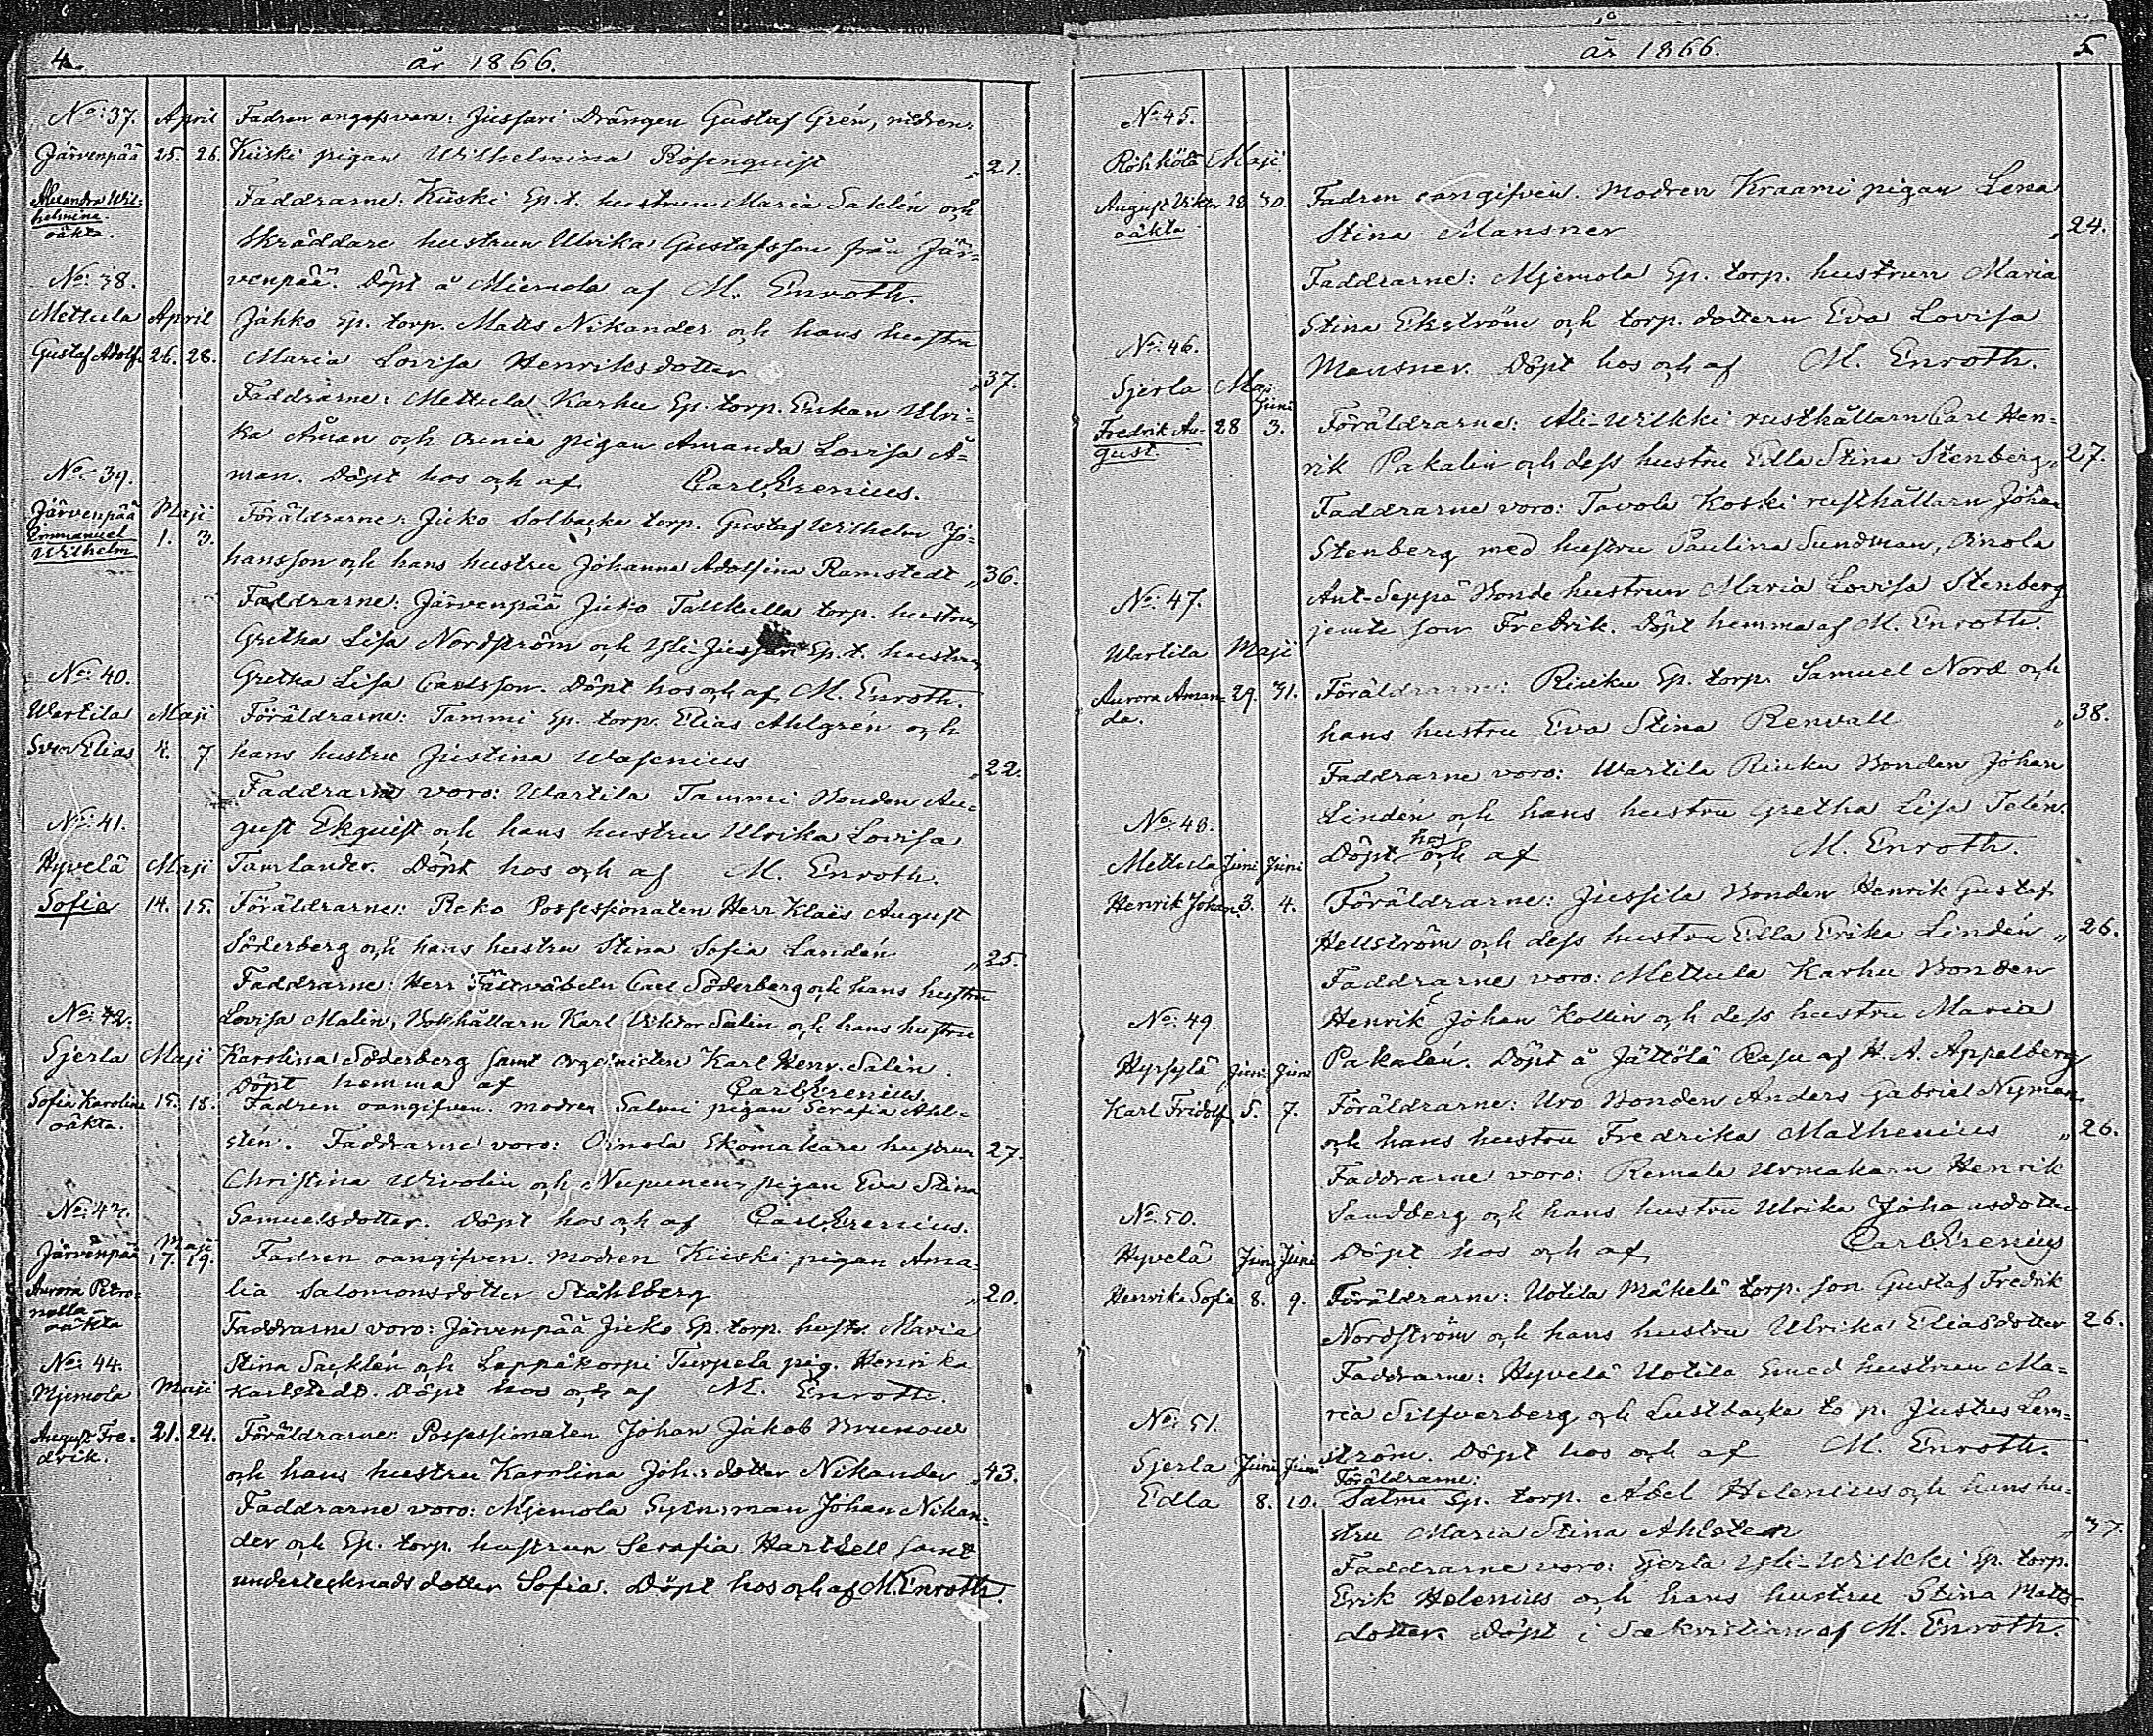 4.
år 1866.
No: 37. April Fadren angafs vara: Jussari Drängen Gustaf Grén, modren:
Järvenpää 25. 26. Kiiski pigan Wilhelmina Rosenquist „ 21.
Alexandra Wil- Faddrarne: Kiiski Sp.t. hustrun Maria Sahlén och
helmina
oäkta. Skräddare hustrun Ulrika Gustafsson från Jär-
No: 38. venpää. Döpt å Miemola af M. Enroth.
Mettula April Jakko Sp. torp. Matts Nikander och hans hustru
Gustaf Adolf 26. 28. Maria Lovisa Henriksdotter „ 37.
Faddrarne: Mettula Karhu Sp. torp. Enkan Ulri-
ka Åman och pigan Amanda Lovisa Å-
No: 39. man. Döpt hos och af Carl Erenius.
Järvenpää Maji Föräldrarne: Juko Solbacka torp. Gustaf Wilhelm Jo-
Emmanuel 1. 3.
Wilhelm hansson och hans hustru Johanna Adolfina Ramstedt „ 36.
Faddrarne: Järvenpää Juko torp. hustrun
Gretha Lisa Nordström och Yli-Jussari Sp.t. hustrun
No: 40. Gretha Lisa Carlsson. Döpt hos och af M. Enroth.
Wartila Maji Föräldrarne: Tammi Sp. torp. Elias Ahlgrén och
Sven Elias 4. 7. hans hustru Justina Wasenius „ 22.
Faddrarne voro: Wartila Tammi Bonden Au-
No: 41. gust Ekquist och hans hustru Ulrika Lovisa
Hyvelä Maji Tamlander. Döpt hos och af M. Enroth.
Sofia 14. 15. Föräldrarne: Reko Possessionaten Herr Klaës August
Söderberg och hans hustru Stina Sofia Landén „ 25.
Faddrarne: Herr Fältväbeln Carl Söderberg och hans hustru
No: 42. Lovisa Malin, Bokhållarn Karl Viktor Salin och hans hustru
Sjerla Maji Karolina Söderberg samt organisten Karl Henr. Salin.
Döpt hemma af Carl Erenius.
Sofia Karolina 15. 18. Fadren oangifven. modren Salmi pigan Serafia Ahl-
oäkta. stén. Faddrarne voro: Oinola Skomakare hustrun 27.
Christina Wivolin och Neupunen pigan Eva Stina
No: 43. Samuelsdotter. Döpt hos och af Carl Erenius.
Järvenpää Maji 17. 19. Fadren oangifven. modren Kiiski pigan Ama-
Aurora Petro- lia Salomonsdotter Ståhlberg „ 20.
nella
oäkta Faddrarne voro: Järvenpää Juko Sp. torp. hustr. Maria
No: 44. Stina Sacklén och Leppäkorpi Turpela pig. Henrika
Mjemola Maji Karlstedt. Döpt hos och af M. Enroth.
August Fre- 21. 24. Föräldrarne: Possessionaten Johan Jakob Brunow
drik. och hans hustru Karolina Joh:s dotter Nikander „ 43.
Faddrarne voro: Mjemola Synsman Johan Nikan-
der och Sp. torp. hustrun Serafia Hartzell samt
undertecknads dotter Sofia. Döpt hos och af M. Enroth.
år 1866.
5
No: 45.
Röhkölä Maji
August Viktor 28 30. Fadren oangifven. Modren Kraami pigan Lena
oäkta Stina Mansner „ 24.
Faddrarne: Mjemola Sp. torp. hustrun Maria
Stina Ekström och torp. dottern Eva Lovisa
No: 46. Mansner. Döpt hos och af M. Enroth.
Sjerla Maji Juni
Fredrik Au- 28 3. Föräldrarne: Ali-Wilkki rusthållarn Carl Hen-
gust rik Pakalin och dess hustru Edla Stina Stenberg „ 27.
Faddrarne voro: Tavola Koski rusthållarn Johan
Stenberg med hustru Paulina Sundman, Oinola
No: 47. Ant-Seppä Bonde hustrun Maria Lovisa Stenberg
jemte son Fredrik. Döpt hemma af M. Enroth.
Wartila Maji
Aurora Aman- 29. 31. Föräldrarne: Riuku Sp. torp. Samuel Nord och
da. hans hustru Eva Stina Renvall „ 38.
Faddrarne voro: Wartila Riuku Bonden Johan
No: 48. Lindén och hans hustru Gretha Lisa Talén.
Mettula Juni Juni Döpt hos och af M. Enroth.
Henrik Johan 3. 4. Föräldrarne: Jussila Bonden Henrik Gustaf
Hellström och dess hustru Edla Erika Lindén „ 26.
Faddrarne voro: Mettula Karhu Bonden
No: 49. Henrik Johan Kollin och dess hustru Maria
Hypylä Juni Juni Pakalén. Döpt å Jättölä Rasu af H. A. Appelberg
Karl Fridolf 5. 7. Föräldrarne: Uro Bonden Anders Gabriel Nyman
och hans hustru Fredrika Mathenius „ 26.
Faddrarne voro: Remala Urmakarn Henrik
No: 50. Sandberg och hans hustru Ulrika Johansdotter
Hyvelä Juni Juni Döpt hos och af Carl Erenius
Henrika Sofia 8. 9. Föräldrarne: Uotila Mäkelä torp. son Gustaf Fredrik
Nordström och hans hustru Ulrika Eliasdotter 26.
Faddrarne: Hyvelä Uotila Smed hustrun Ma-
No: 51. ria Silfverberg och Lustbacka torp. Justus Lem-
ström. Döpt hos och af M. Enroth.
Sjerla Juni Juni Föräldrarne:
Edla 8. 10. Salmi Sp. torp. Abel Helenius och hans hu-
stru Maria Stina Ahlsten „ 37.
Faddrarne voro: Sjerla Yli-Wilkki Sp. torp.
Erik Helenius och hans hustru Stina Matts-
dotter. Döpt i Sakristian af M. Enroth.